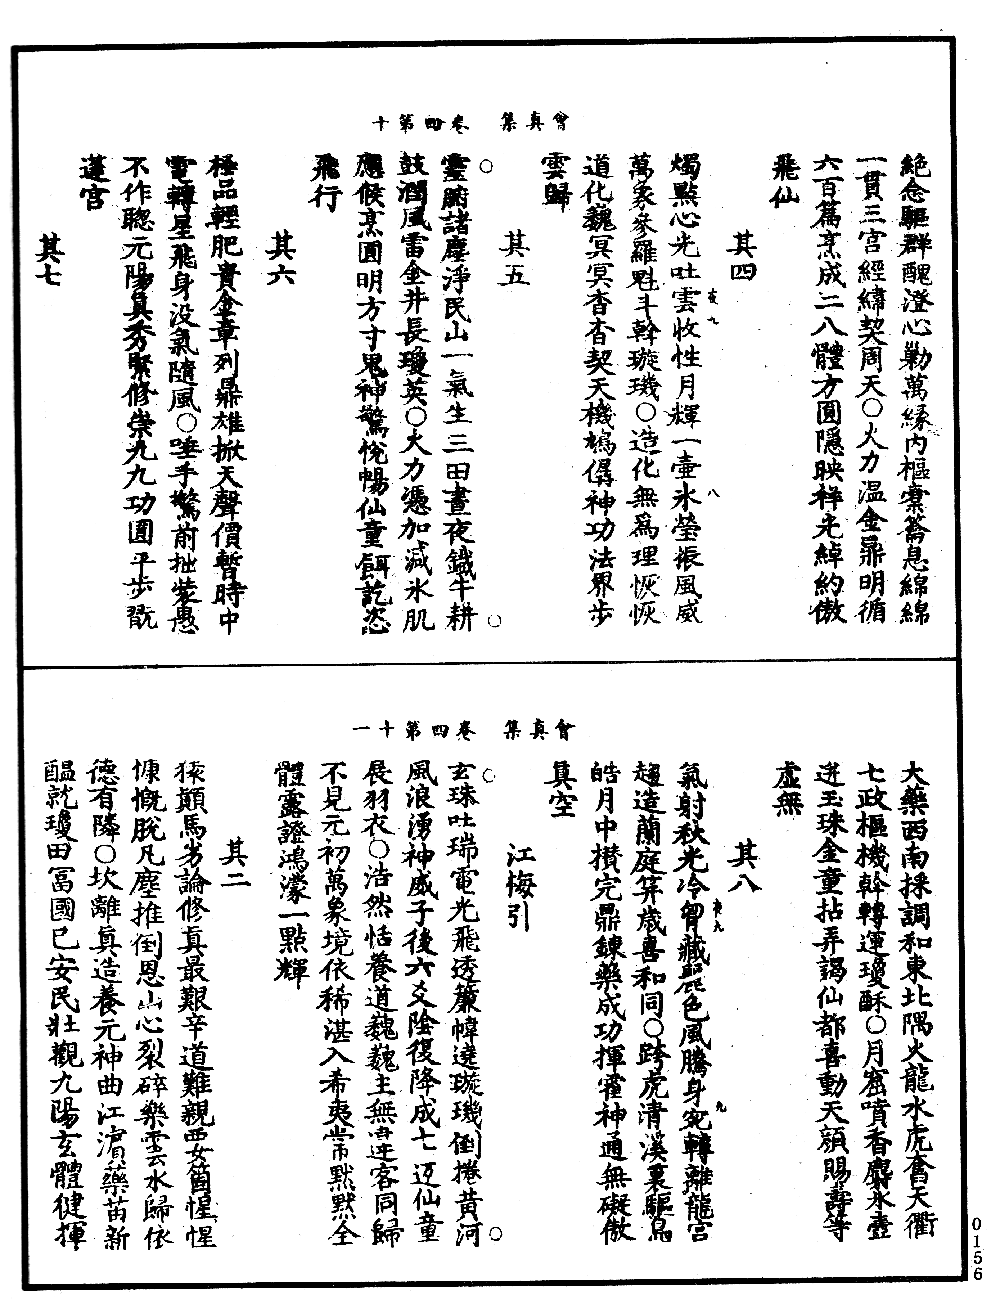 會真集　卷四第十
絕念驅群醜澄心勦萬緣內樞橐籥息綿綿
一貫三宮經緯契周天○火力溫金鼎明循
六百篇烹成二八體方圓隱映祥光綽約傲
飛仙
其四
燭點心光吐雲收性月輝一壺氷瑩振風威
萬象參羅魁斗斡璇璣○造化無為理恢恢
道化巍冥冥杳杳契天機鵷儔神功法界步
雲歸
其五
靈腑諸塵淨艮山一氣生三田晝夜鐵牛耕
鼓潤風雷金井長瓊英○火力憑加減氷肌
應候烹圓明方寸鬼神驚悅暢仙童餌訖恣
飛行
其六
極品輕肥貴金章列鼎雄掀天聲價暫時中
電轉星飛身没氣隨風○唾手驚前拙裝愚
不作聰元陽真秀緊修崇九九功圓平步翫
蓬宮
其七
會真集　卷四第十一
大藥西南採調和東北隅火龍水虎奮天衢
七政樞機斡轉運瓊酥○月窟噴香麝氷壺
迸玉珠金童拈弄謁仙都喜動天顏賜壽等
虛無
其八
氣射秋光冷胷藏麗色風騰身宛轉離龍宮
趨造蘭庭筭歲喜和同○跨虎清溪裏驅烏
皓月中攅完鼎鍊藥成功揮霍神通無礙傲
真空
江梅引
玄珠吐瑞電光飛透簾幃遶璇璣倒捲黃河
風浪湧神威子後六爻陰復降成七返仙童
展羽衣○浩然恬養道巍巍主無違客同歸
不見元初萬象境依稀湛入希夷常默默全
體露證鴻濛一點輝
其二
猿顛馬劣論修真最艱辛道難親要箇惺惺
慷慨脫凡塵推倒恩山心裂碎樂雲水歸依
德有隣○坎離真造養元神曲江濵藥苗新
醖就瓊田富國已安民壯觀九陽玄體健揮
0156